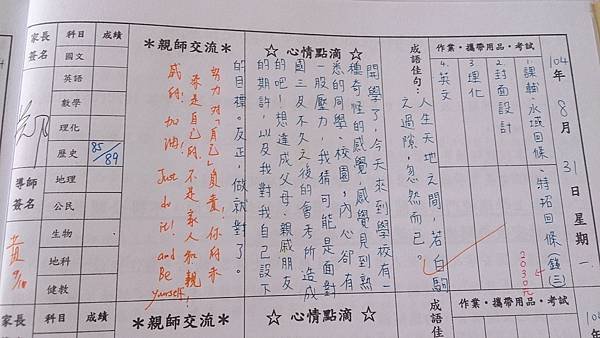 104年8月31日星期一
作業・攜帶用品・考試
1.課輔、永域回條、特招回條(錢三)
2030元
2.封面設計
3.理化
4.英文
成語佳句：
人生天地之間，若白駒
之過隙，忽然而已。
☆ 心情點滴 ☆
開學了，今天來到學校有一
種奇怪的感覺，感覺見到熟
悉的同學、校園，內心卻有
一股壓力，我猜可能是面對
國三及不久之後的會考所造成
的吧！想達成父母、親戚朋友
的期許，以及我對我自己設下
的目標。反正，做就對了。
＊親師交流＊
努力對「自己」負責，你的未
來是自己的，不是家人和親
戚的，加油！Just do it! and Be yourself!
科目 成績
國文
英語
數學
理化
歷史 85/89
地理
公民
生物
地科
健教
家長簽名
導師簽名
9/1
作業・攜帶用品・考試
成語佳
☆ 心情點滴 ☆
＊親師交流＊
科目 成績
家長